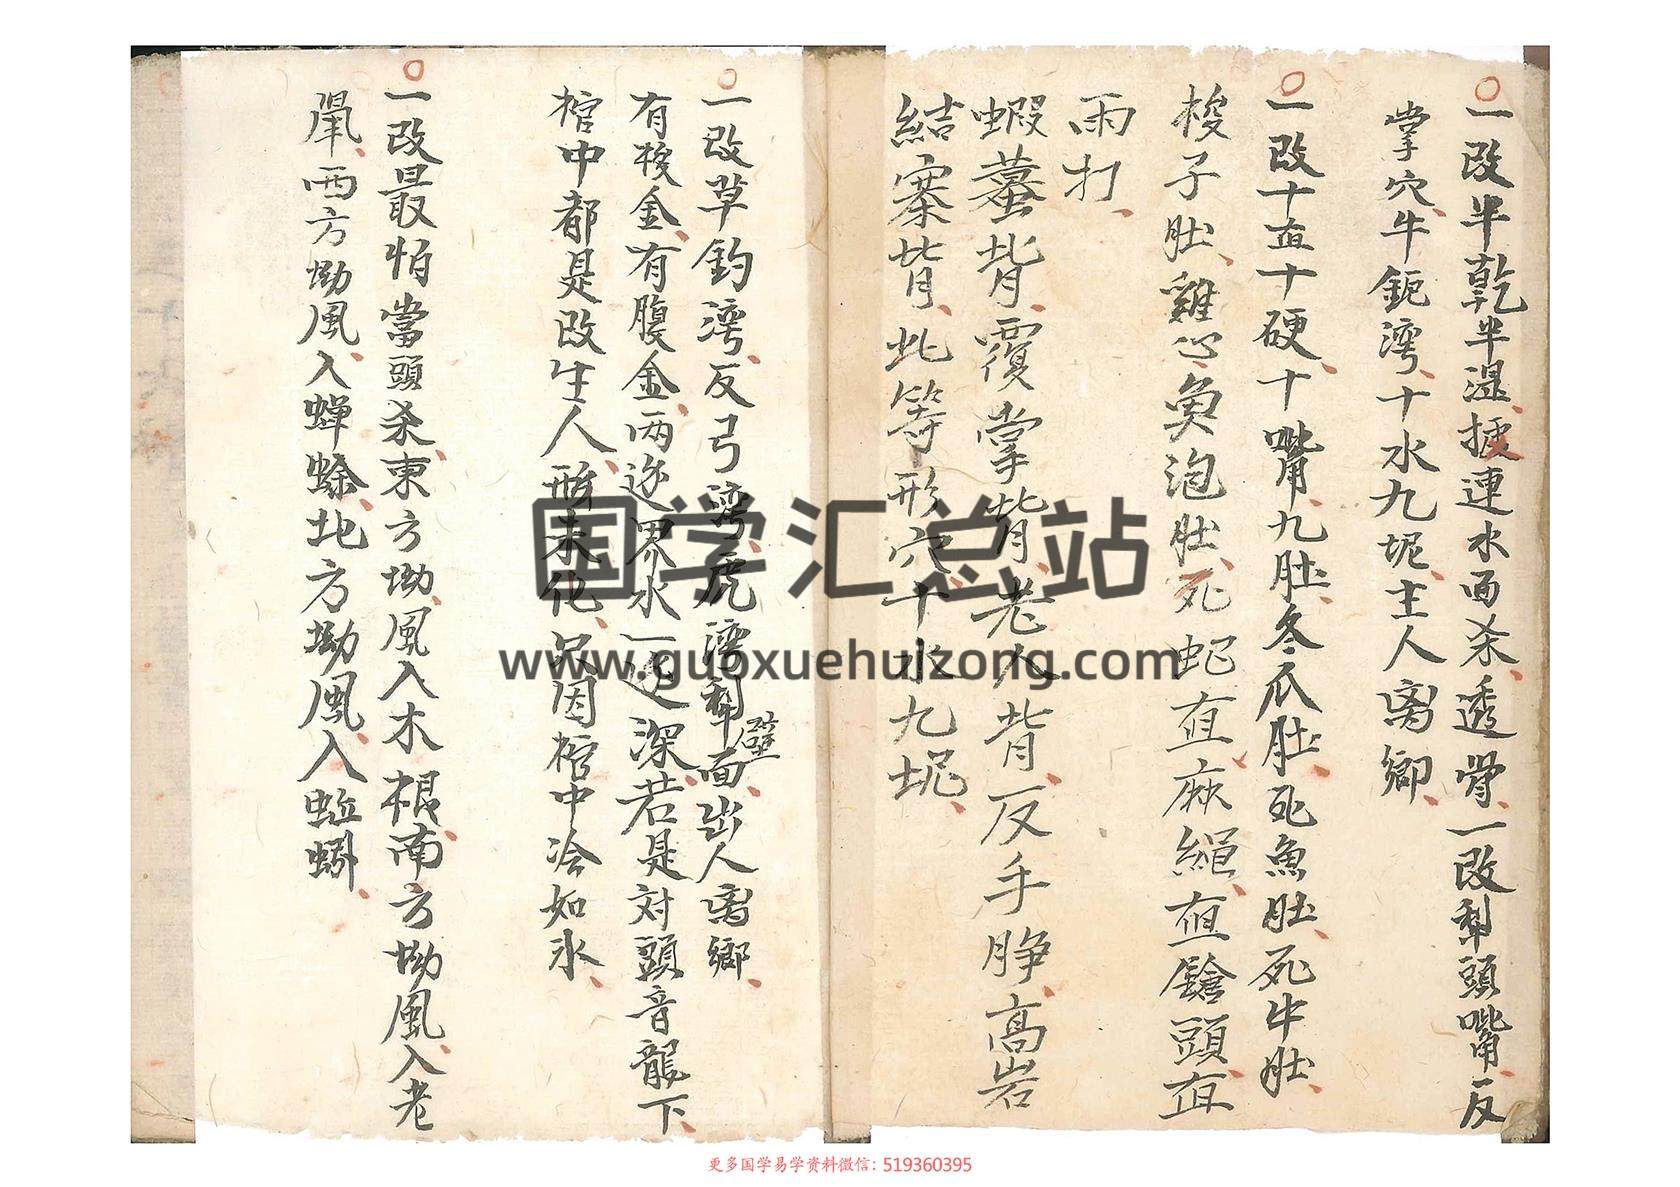 一改半乾半湿插連水面杀透骨一改犁頭嘴反
掌穴牛鈪湾十水九坭主人离鄉
一改十直十硬十嘴九肚冬瓜肚死魚肚死牛肚
梭子肚雞心魚泡肚死蛇直麻繩直鎗頭直
雨打
蝦蟇背覆掌背老人背反手脖高岩
結寨背此等形穴十水九坭
一改草釣湾反弓湾虎湾犁面出人离鄉
壁
有梭金有腹金两边界水一边深若是対頭音龍下
棺中都是改生人形未化只因棺中冷如氷
一改最怕當頭杀東方坳風入木根南方坳風入老
鼠西方坳風入蟬蜍北方坳風入蚯蚓
国学汇总站
www.guoxuehuizong.com
更多国学易学资料微信：519360395